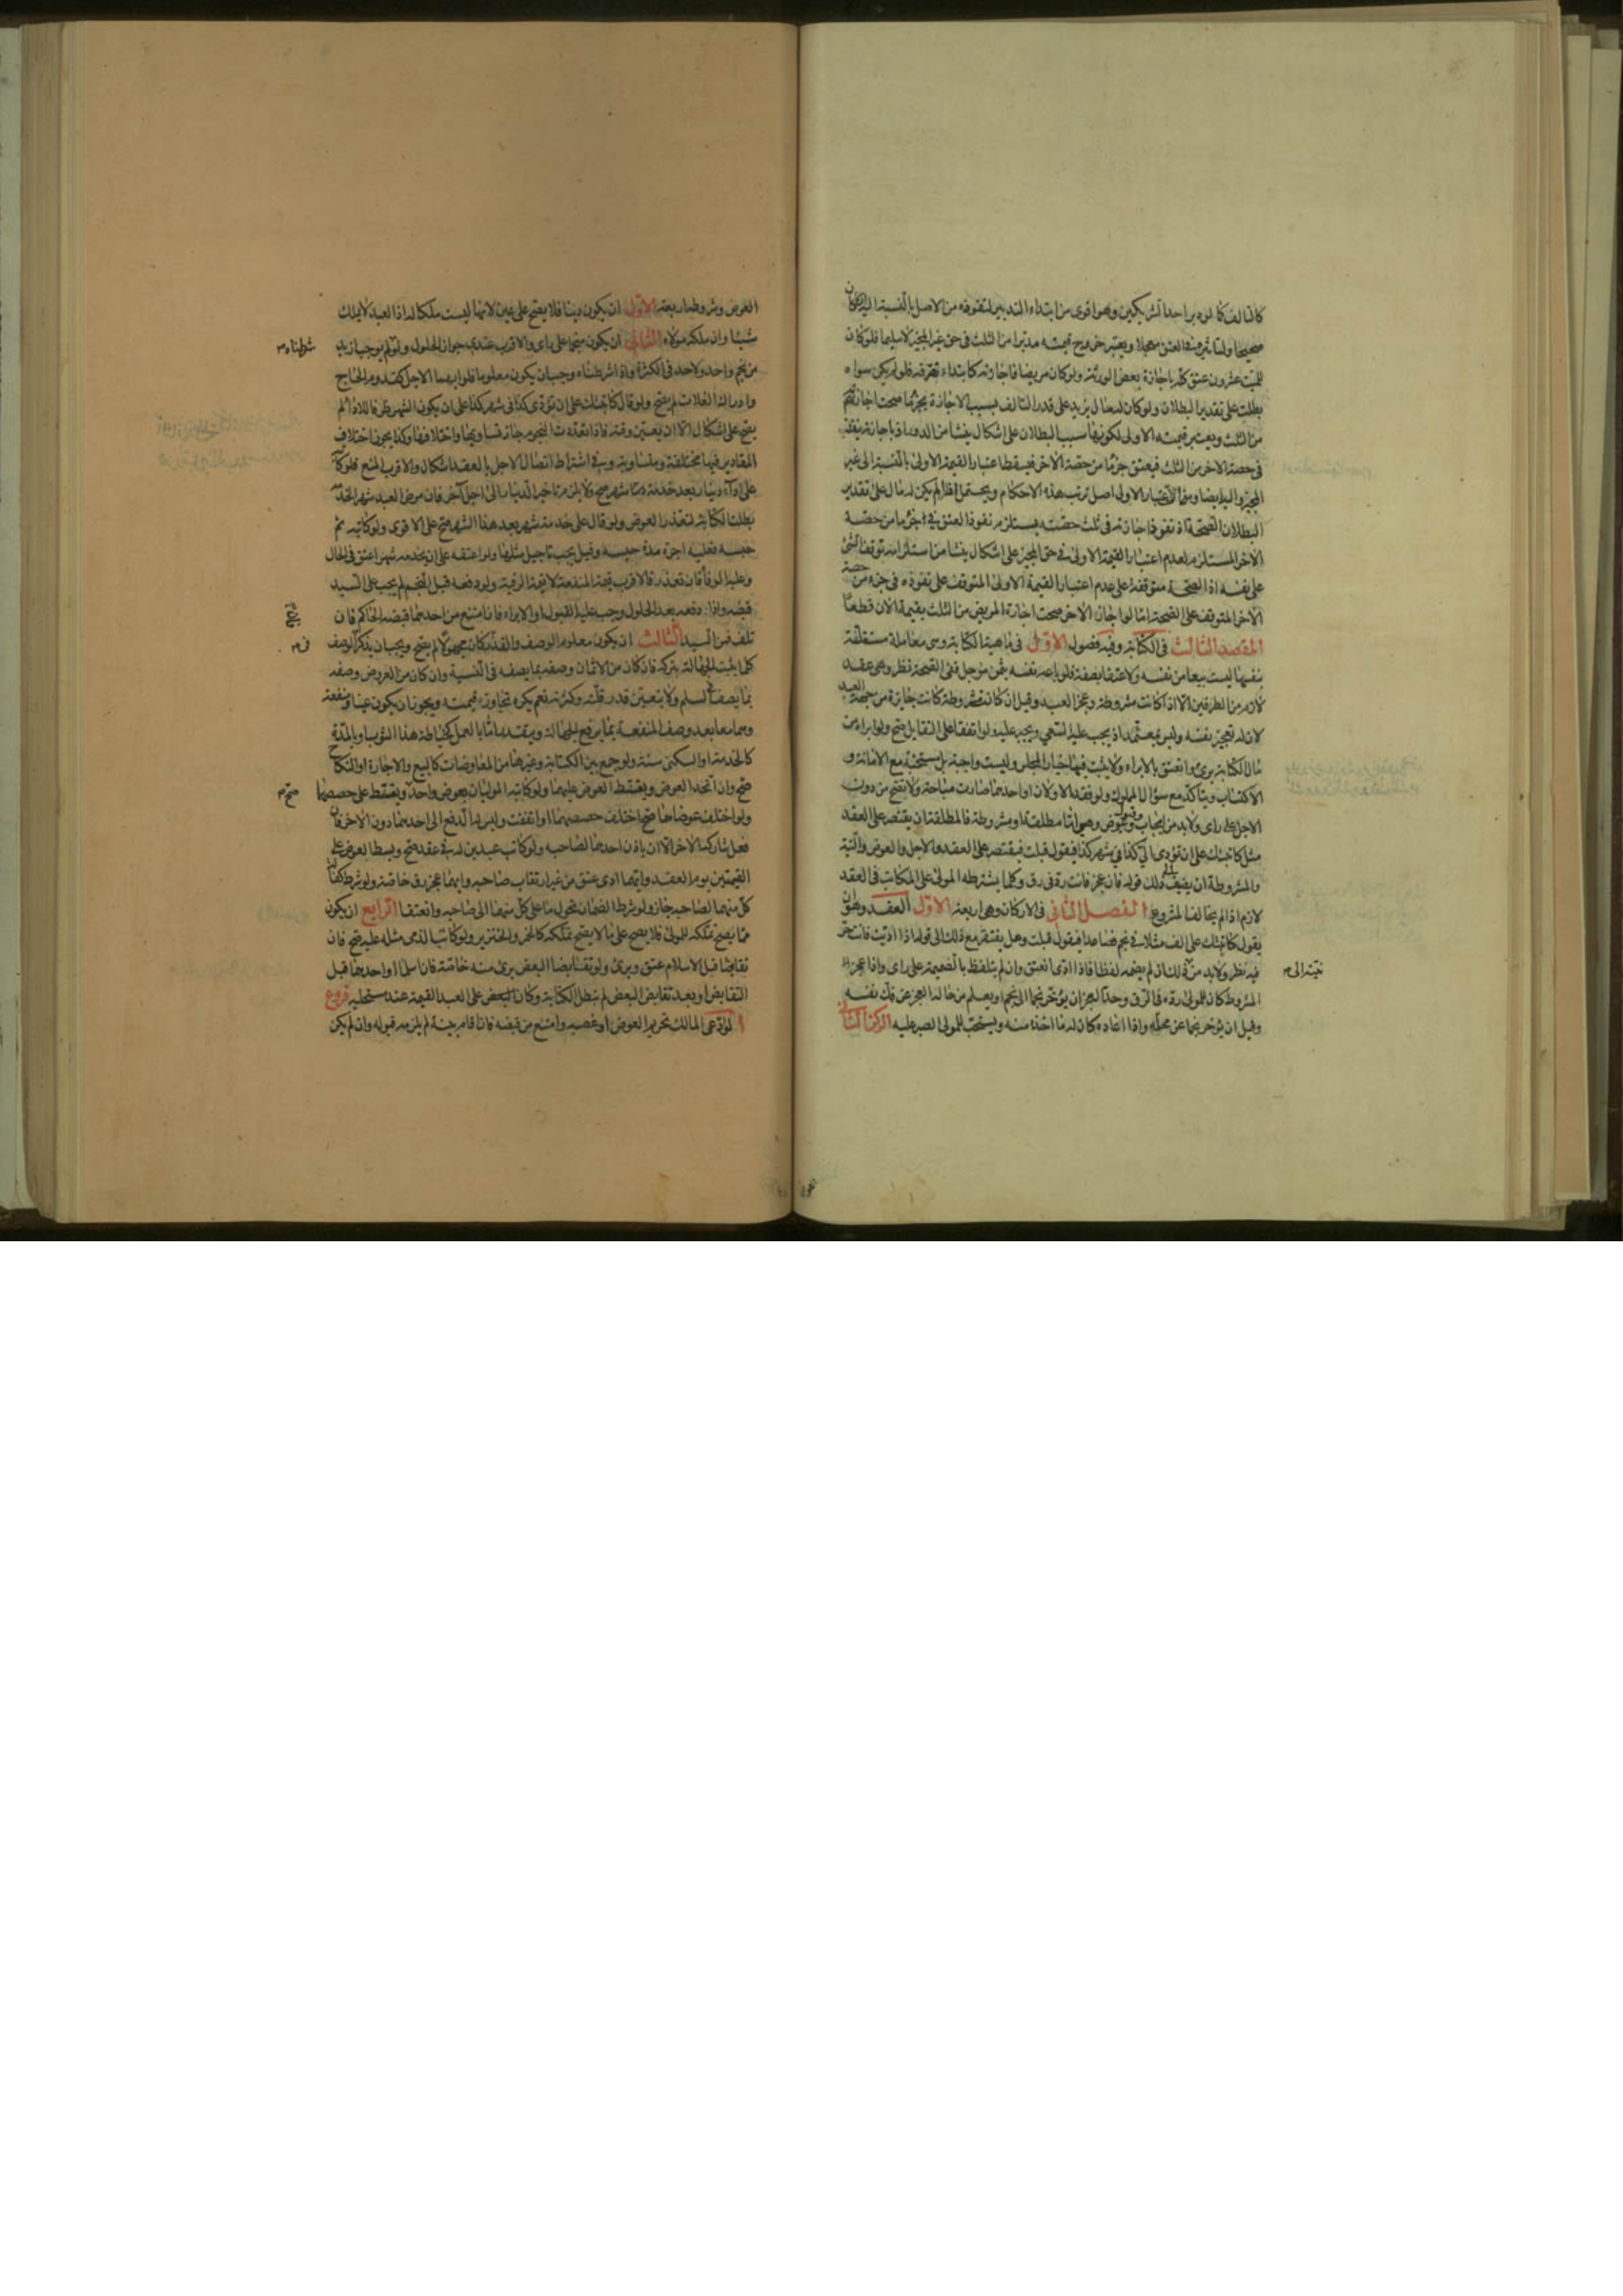 كالتالف كما لو دبر احد الشريكين وهو اقوى من ابتداء التدبير لنفوذه من الاصل بالنسبة اليه ان كان
صحيحا ولنا شرع في العتق معجلا ويعتبر خروج قيمته مدبرا من الثلث في حق غير المجيز لا سليما فلو كان
للميت عشرون عتق كله باجازة بعض الورثة ولو كان مريضا فاجازته كابتداء تصرفه فلو لم يكن سواه
بطلت على تقدير البطلان ولو كان له مال يزيد على قدر التالف بسبب الاجازة بجزء ما صحت اجازته
من الثلث ويعتبر قيمته الاولى لكونها سبب البطلان على اشكال ينشأ من الدور اذ باجازته ينفذ
في حصة الاخر من الثلث فيعتق جزء ما من حصة الاخر فيسقط اعتبار القيمة الاولى بالنسبة الى غير
المجيز واليه ايضا ومن ان اعتبار الاولى اصل ترتب هذه الاحكام ويحتمل اذا لم يكن له مال على تقدير
البطلان الصحة اذ نفوذ اجازته في ثلث حصته يستلزم نفوذ العتق في جزء ما من حصة
الاخر المستلزم لعدم اعتبار القيمة الاولى في حق المجيز على اشكال ينشأ من استلزامه توقف الشئ
على نفسه اذ الصحة متوقفة على عدم اعتبار القيمة الاولى المتوقف على نفوذه في جزء من حصة
الاخر المتوقف على الصحة امّا لو اجاز الاخر صحت اجازة المريض من الثلث بقيمة الان قطعًا
المقصد الثالث في الكتابة وفيه فصول الاول في ماهية الكتابة وهي معاملة مستقلة
بنفسها ليست بيعا من نفسه ولا عتقا بصفة فلو باعه نفسه بثمن مؤجل ففي الصحة نظر وهي عقد
لازم من الطرفين الا اذا كانت مشروطة وعجز العبد وقيل ان كانت مشروطة كانت جايزة من جهة العبد
لان له تعجيز نفسه وليس بمعتمد اذ يجب عليه السعي ويجبر عليه ولو اتفقا على التقايل صح ولو ابراه من
مال الكتابة برئ وانعتق بالابراء ولا يثبت فيها خيار المجلس وليست واجبة بل مستحبة مع الامانة و
الاكتساب ويتأكد مع سؤال المملوك ولو فقد الاولان او احدهما صارت مباحة ولا تصح من دون
الاجل على راى ولا بد من ايجاب وقبول وعوض وهي اما مطلقة او مشروطة فالمطلقة ان يقتصر على العقد
مثل كاتبتك على ان تؤدى الي كذا في شهر كذا فيقول قبلت فيقتصر على العقد والاجل والعوض والنية
والمشروطة ان يضيف الى ذلك قوله فان عجزت فانت رد في رق وكلما يشترطه المولى على المكاتب في العقد
لازم اذا لم يخالف المشروع الفصل الثاني في الاركان وهي اربعة الاول العقد وهو ان
يقول كاتبتك على الف مثلا في نجم فصاعدا فيقول قبلت وهل يفتقر مع ذلك الى قوله اذا اديت فانت حر
فيه نظر ولا بد من نية ذلك ان لم يضمه لفظا فاذا ادى انعتق وان لم يتلفظ بالضميمة على راى واذا عجز
المشروط كان للمولى رده في الرق وحد العجز ان يؤخر نجما الى نجم او يعلم من حاله العجز عن فك نفسه
وقيل ان يؤخر نجما عن محله واذا اعاده كان له ما اخذه منه ويستحب للمولى الصبر عليه الركن الثاني
نيته الى م
العوض وشروطه اربعة الاول ان يكون دينا فلا يصح على عين لانها ليست ملكا له اذ العبد لا يملك
شيئا وان ملكه مولاه الثاني ان يكون منجما على راى والاقرب عندي جواز الحلول ولو لم نوجبه ازيد
من نجم واحد ولا حد في الكثرة واذا شرطناه وجب ان يكون معلوما فلو ابهما الاجل كقدوم الحاج
وادراك الغلات لم يصح ولو قال كاتبتك على ان تؤدى كذا في شهر كذا على ان يكون الشهر ظرفا للاداء لم
يصح على اشكال الا ان يعين وقته فاذا تعددت النجوم جاز تساويها واختلافها وكذا يجوز اختلاف
المقادير فيها مختلفة ومتساوية وفي اشتراط اتصال الاجل بالعقد اشكال والاقرب المنع فلو كاتبه
على اداء دينار بعد خدمة شهر صح ولا يلزم تاخير الدينار الى اجل آخر فان مرض العبد شهر الخدمة
بطلت الكتابة لتعذر العوض ولو قال على خدمة شهر بعد هذا الشهر صح على الاقوى ولو كاتبه ثم
حبسه فعليه اجرة مدة حبسه وقيل يجب تاجيل مثلها ولو اعتقه على ان يخدمه شهرا عتق في الحال
وعليه الوفاء فان تعذر فالاقرب قيمة المنفعة لا قيمة الرقبة ولو دفعه قبل النجم لم يجب على السيد
قبضه واذا دفعه بعد الحلول وجب عليه القبول او الابراء فان امتنع من احدهما قبضه الحاكم فان
تلف فمن السيد الثالث ان يكون معلوم الوصف والقدر فان كان مجهولا لم يصح ويجب ان يذكر الوصف
كلما يثبت الجهالة بتركه فان كان من الاثمان وصفه بما يصفه في النسية وان كان من العروض وصفه
بما يصف السلم ولا يتعين قدر قلة وكثرة نعم يكره تجاوز قيمته ويجوز ان يكون عينا ومنفعة
وهما معا بعد وصف المنفعة بما يرفع الجهالة ويتقدر امّا بالعمل كخياطة هذا الثوب او بالمدة
كالخدمة او السكنى سنة ولو جمع بين الكتابة وغيرها من المعاوضات كالبيع والاجارة او النكاح
صح وان اتحد العوض ويقسط العوض عليهما ولو كاتبه الموليان بعوض واحد ويقسط على حصصهما
ولو اختلف عوضاهما صح اختلف حصصهما او اتفقت وليس له الدفع الى احدهما دون الاخر فان
فعل شاركه الاخر الا ان ياذن احدهما لصاحبه ولو كاتب عبدين له في عقد صح وبسط العوض على
القيمتين يوم العقد وايهما ادى عتق من غير ارتقاب صاحبه وايهما عجز رق خاصة ولو شرط كفالة
كل منهما لصاحبه جاز ولو شرط الضمان تحول ما على كل منهما الى صاحبه وانعتقا الرابع ان يكون
مما يصح تملكه للمولى فلا يصح على ما لا يصح تملكه كالخمر والخنزير ولو كاتب الذمي مثله عليه صح فان
تقابضا قبل الاسلام عتق وبرئ ولو تقابضا البعض برئ منه خاصة فان اسلما او احدهما قبل
التقابض او بعد تقابض البعض لم تبطل الكتابة وكان على العبد القيمة عند مستحليه فروع
ا لو ادعى المالك تحريم العوض او غصبه وامتنع من قبضه فان اقام بينة لم يلزمه قبوله وان لم يكن
شرطناه م
صح م